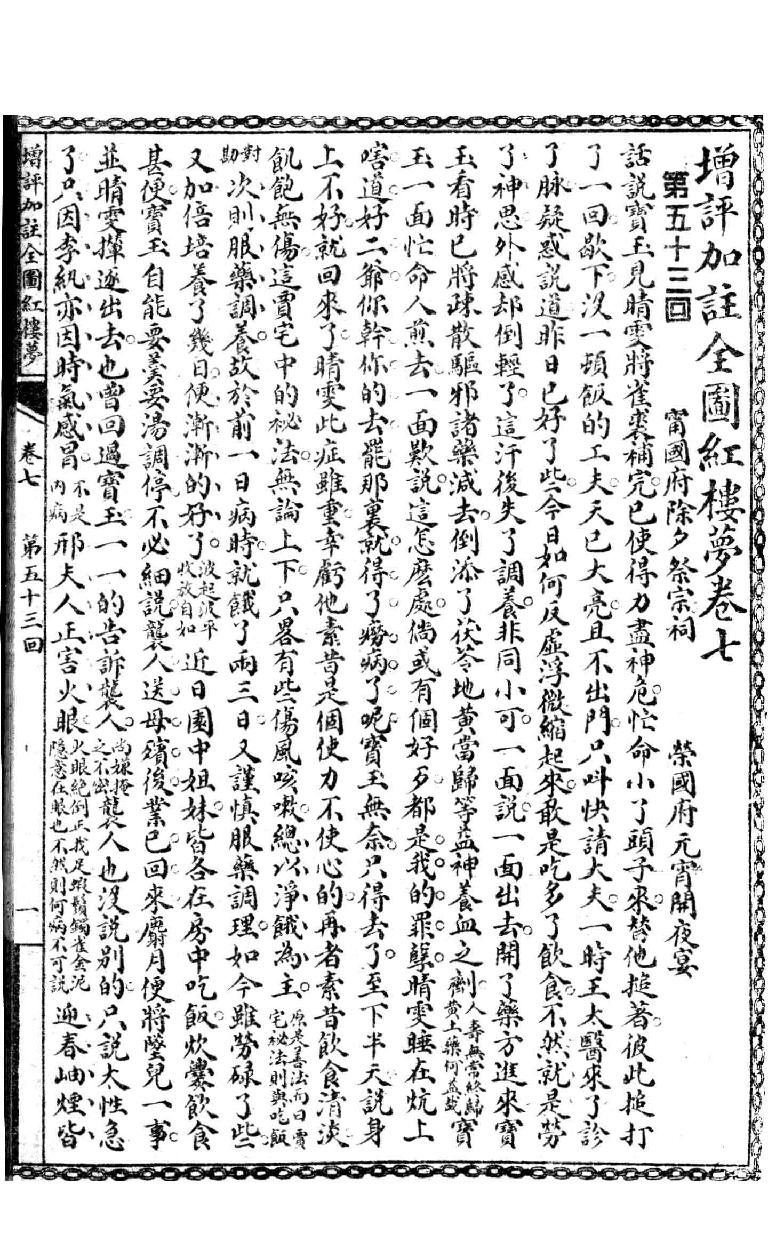 增評加註全圖紅樓夢卷七
第五十三回　甯國府除夕祭宗祠　榮國府元宵開夜宴
話說寶玉見晴雯將雀裘補完已使得力盡神危忙命小丫頭子來替他搥著彼此搥打
了一回歇下沒一頓飯的工夫天已大亮且不出門只呌快請大夫一時王太醫來了診
了脉疑惑說道昨日已好了些今日如何反虛浮微縮起來敢是吃多了飲食不然就是勞
了神思外感却倒輕了這汗後失了調養非同小可一面說一面出去開了藥方進來寶
玉看時已將疎散驅邪諸藥減去倒添了茯苓地黃當歸等益神養血之劑人壽無常終歸黃土藥何益哉寶
玉一面忙命人煎去一面歎說這怎麽處倘或有個好歹都是我的罪孽晴雯睡在炕上
嗐道好二爺你幹你的去罷那裏就得了癆病了呢寶玉無奈只得去了至下半天說身
上不好就回來了晴雯此症雖重幸虧他素昔是個使力不使心的再者素昔飲食清淡
飢飽無傷這賈宅中的祕法無論上下只畧有些傷風咳嗽總以淨餓為主原是善法而曰賈宅祕法則與吃飯
對勘次則服藥調養故於前一日病時就餓了兩三日又謹慎服藥調理如今雖勞碌了些
又加倍培養了幾日便漸漸的好了波起波平收放自如近日園中姐妹皆各在房中吃飯炊爨飲食
甚便寶玉自能要羹要湯調停不必細說襲人送母殯後業已回來麝月便將墜兒一事
並晴雯攆逐出去也曾回過寶玉一一的告訴襲人尚嫌掩之不密襲人也沒說別的只說太性急
了只因李紈亦因時氣感冒不是內病邢夫人正害火眼火眼絕倒正我足蝦鬚鐲雀金泥隱意在眼也不然則何病不可說迎春岫煙皆
增評加註全圖紅樓夢　卷七　第五十三回　一